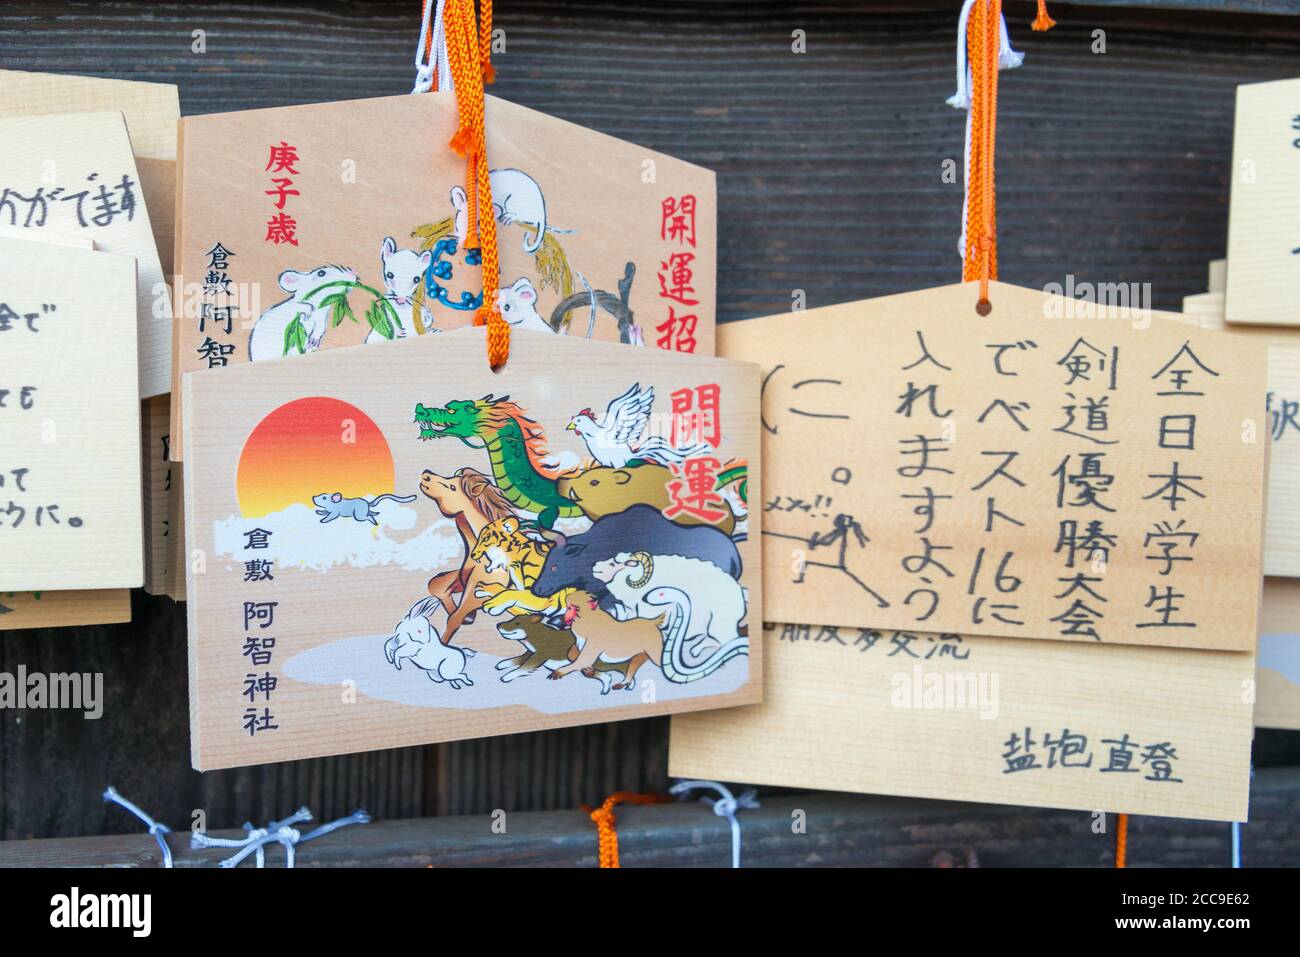 かがでます
全で
ても
って
ように。
庚子歳
倉敷
阿智
開運招
開運
倉敷 阿智神社
全日本学生
剣道優勝大会
でベスト16に
入れますよう
に。
メン!!
朋友多交流
盐饱 直登
alamy
Image ID: 2CC9E62
www.alamy.com